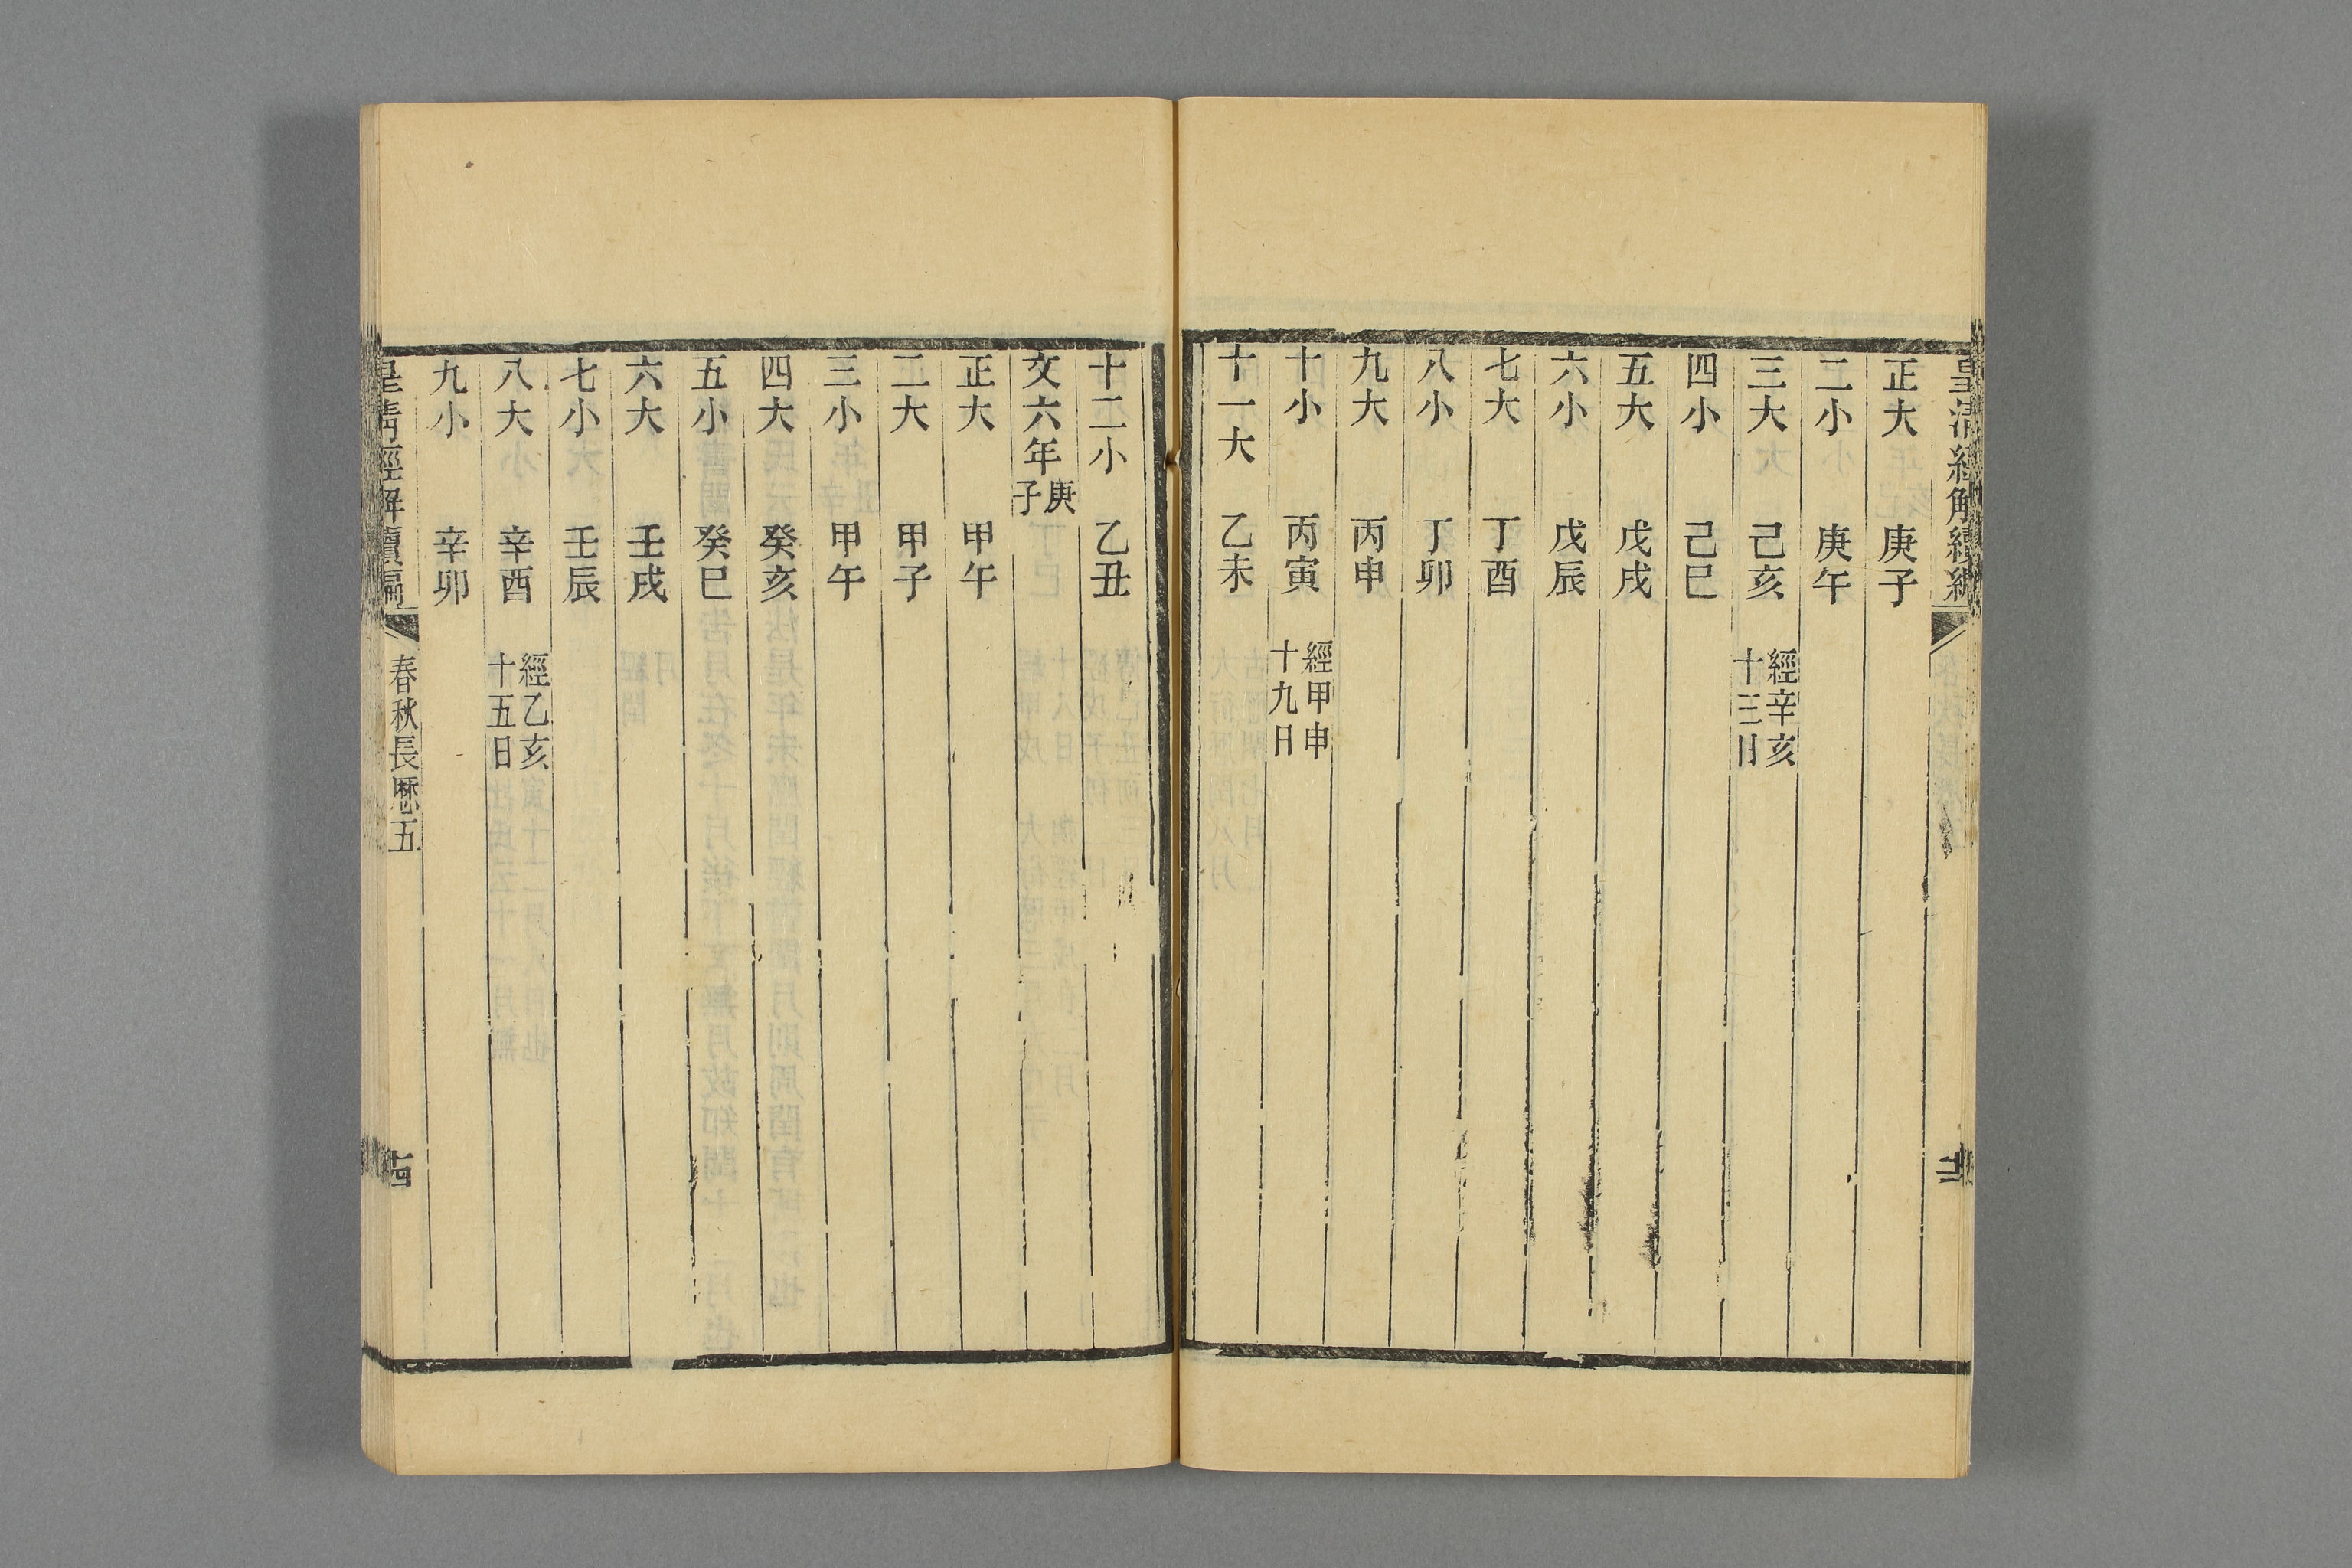 皇清經解續編
正大 庚子
二小 庚午
三大 己亥 經辛亥
十三日
四小 己巳
五大 戊戌
六小 戊辰
七大 丁酉
八小 丁卯
九大 丙申
十小 丙寅 經甲申
十九日
十一大 乙未
十二小 乙丑
文六年 庚
子
正大 甲午
二大 甲子
三小 甲午
四大 癸亥
五小 癸巳
六大 壬戌
七小 壬辰
八大 辛酉 經乙亥
十五日
九小 辛卯
皇清經解續編 春秋長歷五 十四